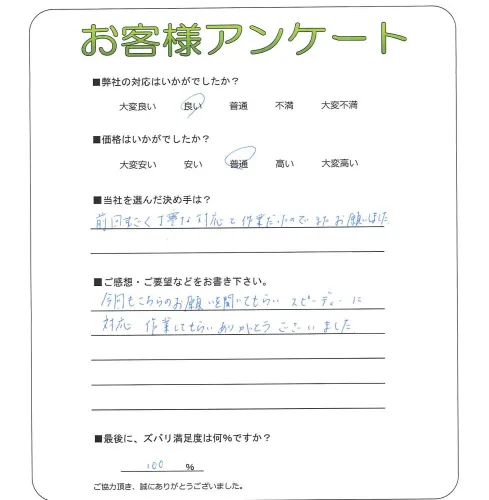 お客様アンケート
■弊社の対応はいかがでしたか？
大変良い 良い 普通 不満 大変不満
■価格はいかがでしたか？
大変安い 安い 普通 高い 大変高い
■当社を選んだ決め手は？
前回もすごく丁寧な対応と作業だったのでまたお願いしました
■ご感想・ご要望などをお書き下さい。
今回もこちらのお願いを聞いてもらい スピーディーに
対応 作業してもらいありがとうございました
■最後に、ズバリ満足度は何％ですか？
100 %
ご協力頂き、誠にありがとうございました。